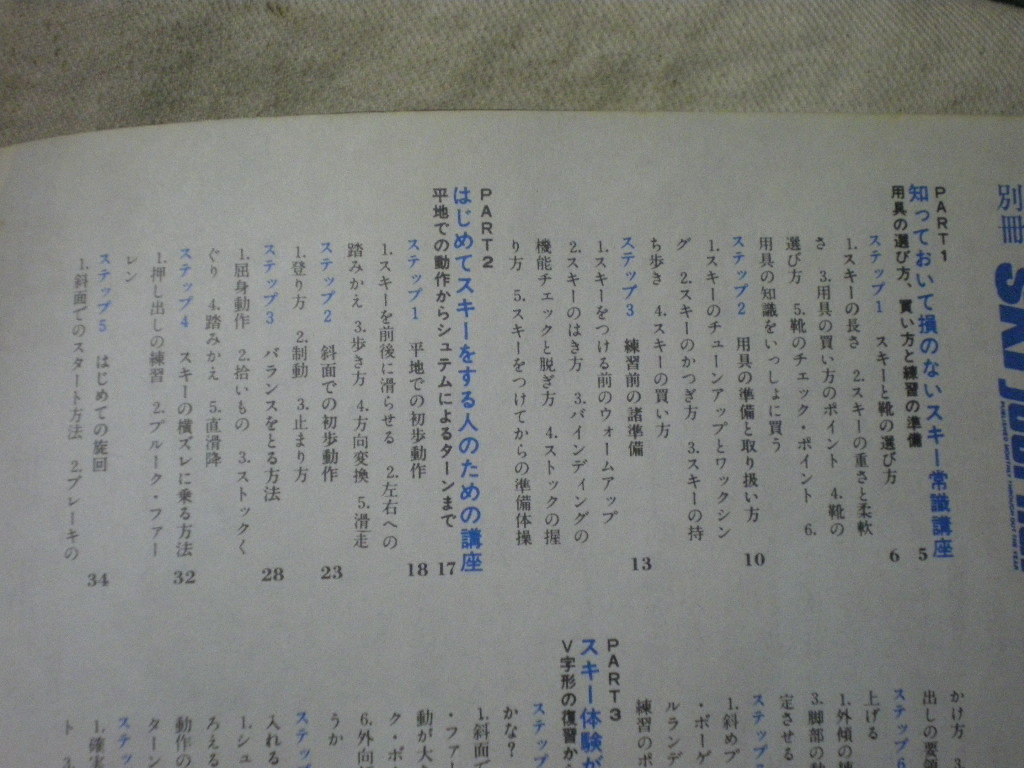 別冊 SKI JOURNAL
PART1
知っておいて損のないスキー常識講座
用具の選び方、買い方と練習の準備 5
ステップ1 スキーと靴の選び方 6
1.スキーの長さ 2.スキーの重さと柔軟
さ 3.用具の買い方のポイント 4.靴の
選び方 5.靴のチェック・ポイント 6.
用具の知識をいっしょに買う
ステップ2 用具の準備と取り扱い方 10
1.スキーのチューンアップとワックシン
グ 2.スキーのかつぎ方 3.スキーの持
ち歩き 4.スキーの買い方
ステップ3 練習前の諸準備 13
1.スキーをつける前のウォームアップ
2.スキーのはき方 3.バインディングの
機能チェックと脱ぎ方 4.ストックの握
り方 5.スキーをつけてからの準備体操
PART2
はじめてスキーをする人のための講座
平地での動作からシュテムによるターンまで 17
ステップ1 平地での初歩動作 18
1.スキーを前後に滑らせる 2.左右への
踏みかえ 3.歩き方 4.方向変換 5.滑走
ステップ2 斜面での初歩動作 23
1.登り方 2.制動 3.止まり方
ステップ3 バランスをとる方法 28
1.屈身動作 2.拾いもの 3.ストックく
ぐり 4.踏みかえ 5.直滑降
ステップ4 スキーの横ズレに乗る方法 32
1.押し出しの練習 2.プルーク・ファー
レン
ステップ5 はじめての旋回 34
1.斜面でのスタート方法 2.ブレーキの
かけ方 3.
出しの要領
ステップ6
上げる
1.外傾の練
3.脚部の動
定させる
ステップ
1.斜めプ
・ボーゲ
ルランデ
練習のポ
PART3
スキー体験が
V字形の復習か
ステップ
かな？
1.斜面で
・ファー
動が大
ク・ボ
6.外向
うか
ステップ
入れる
1.シュ
ろえる
動作の
ターン
ステッ
1.確実
ト 3.